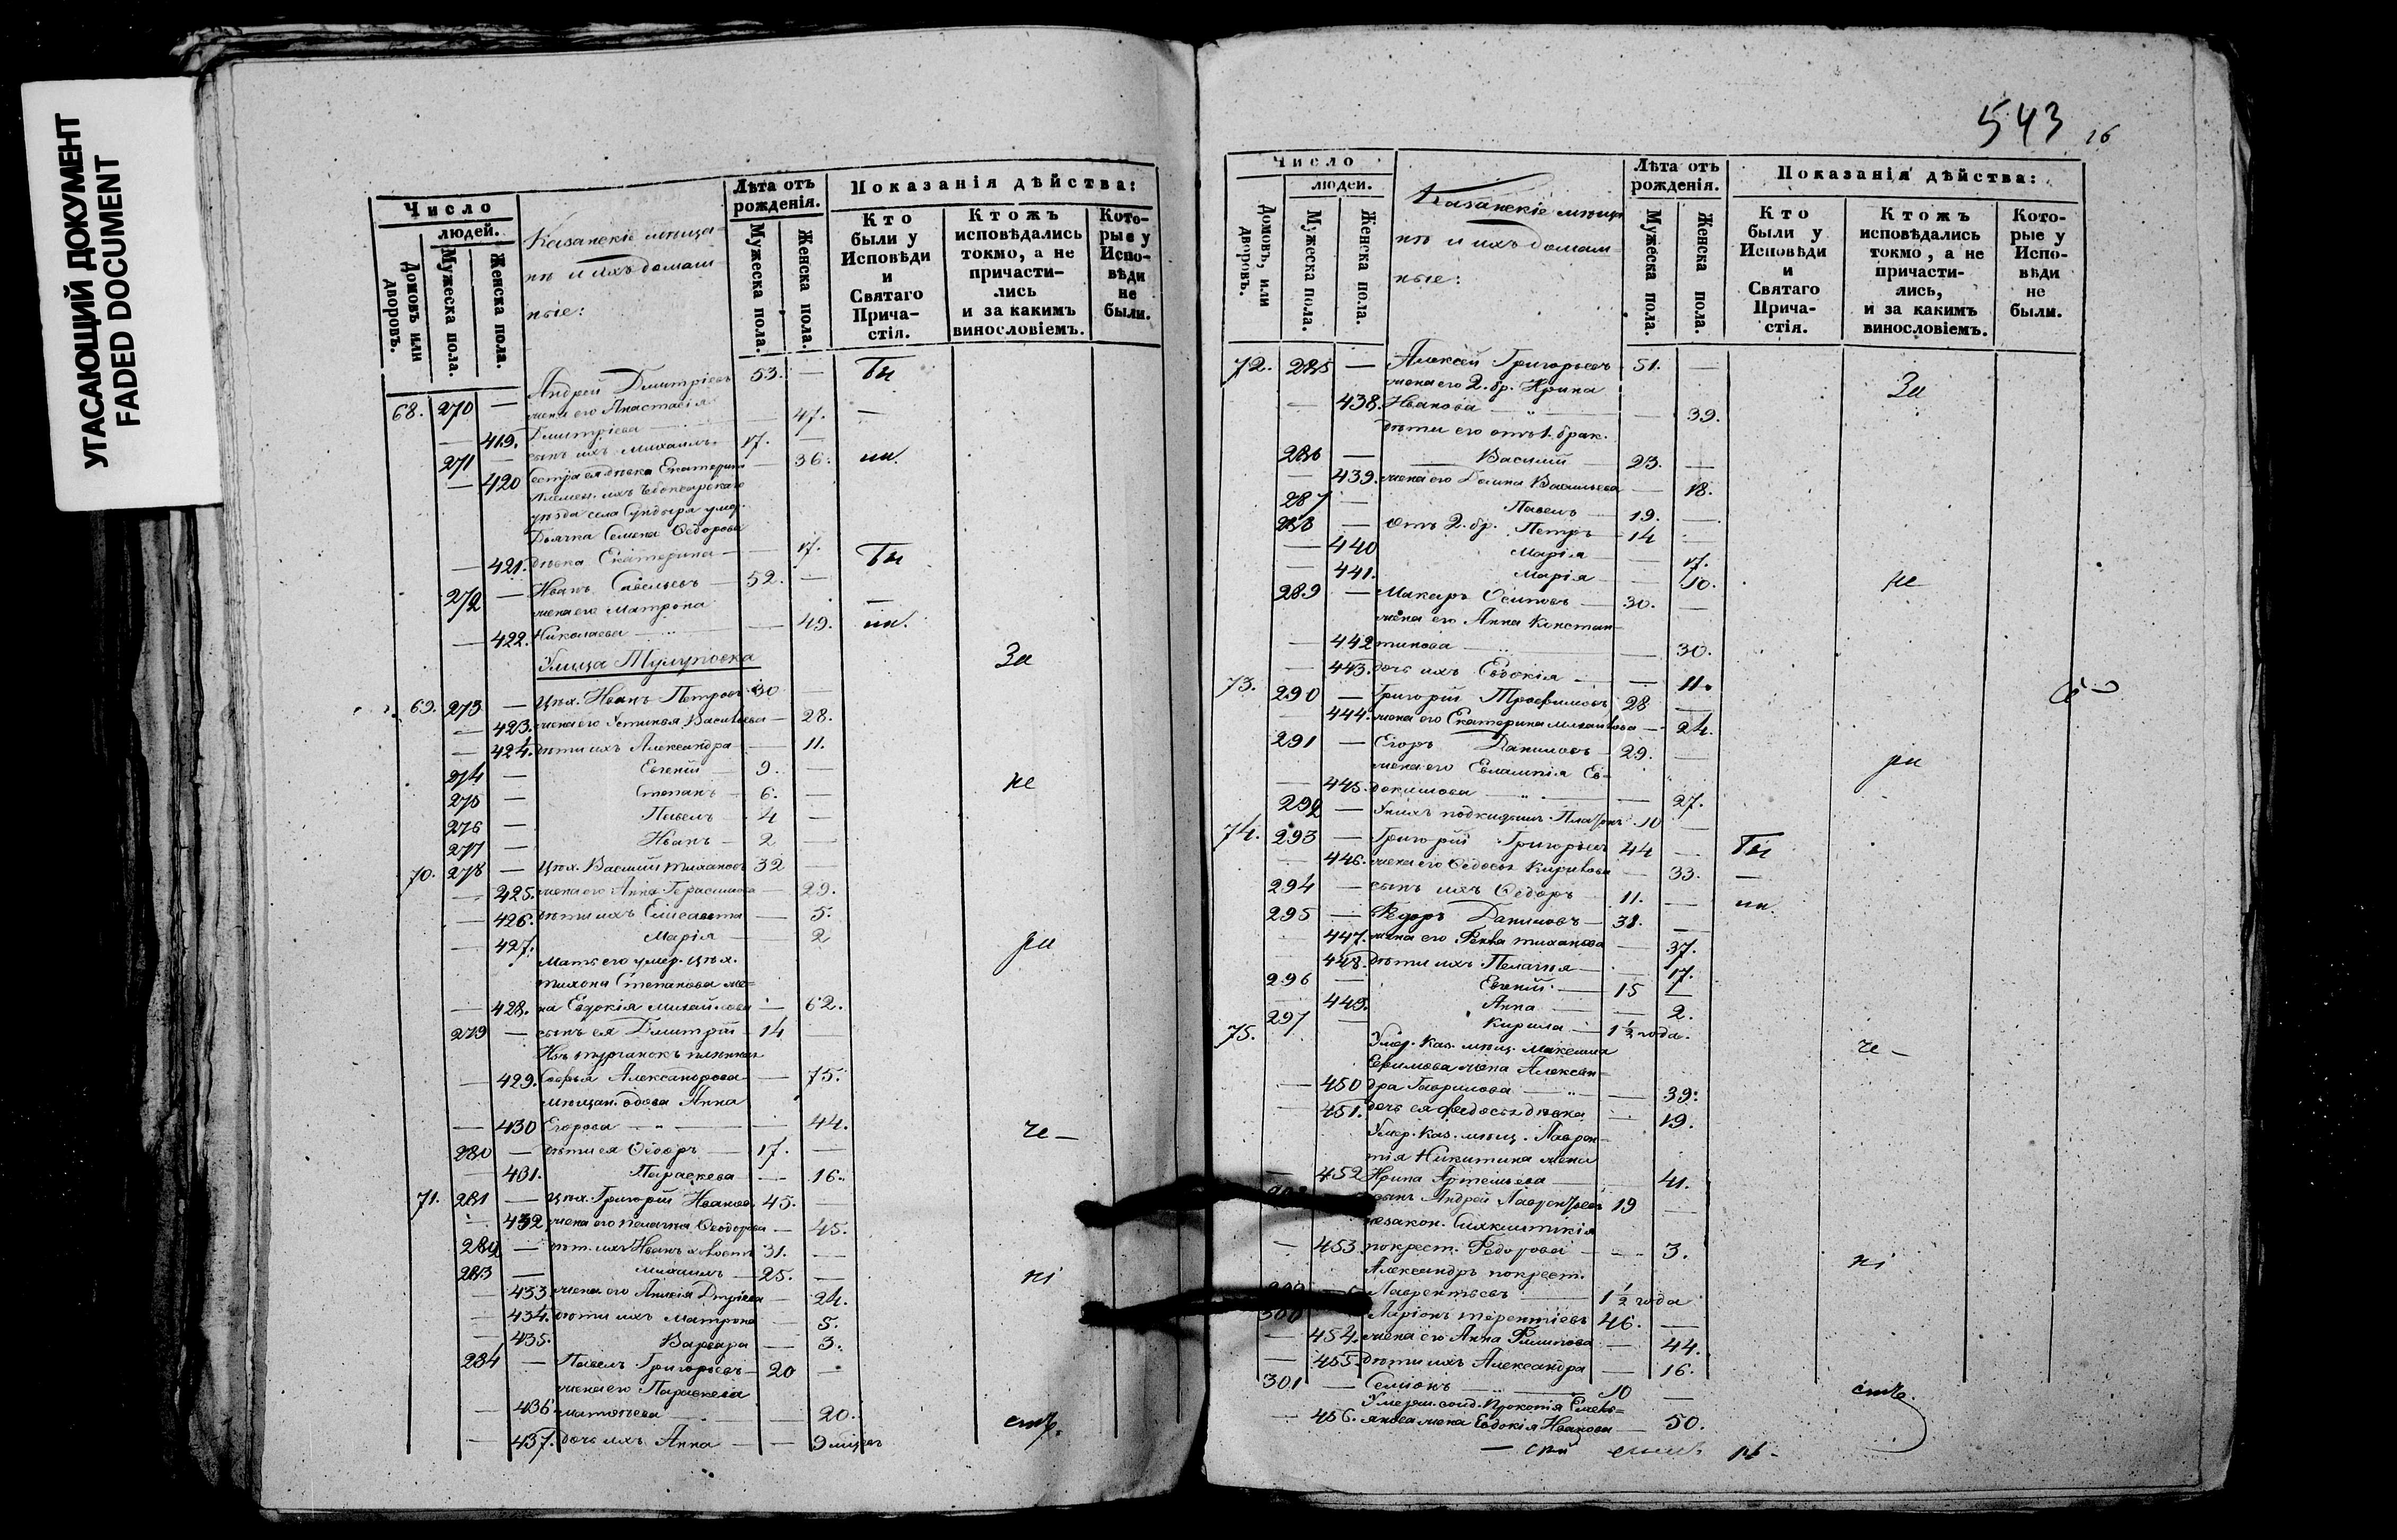 УГАСАЮЩИЙ ДОКУМЕНТ
FADED DOCUMENT
Число
людей.
Домовъ или дворовъ.
Мужеска пола.
Женска пола.
Казанскіе мѣща-
не и ихъ домаш-
ніе:
Лѣта отъ рожденія.
Мужеска пола.
Женска пола.
Показанія дѣйства:
Кто были у Исповѣди и Святаго Прича-стія.
Ктожъ исповѣдались токмо, а не причасти-лись и за какимъ винословіемъ.
Кото-рые у Испо-вѣди не были.
68. 270 — Андрей Дмитріевъ 53. — Бы
жена его Анастасія
— 419. Дмитріева — 47. —
271 — сынъ ихъ Михаилъ 17. —
— 420 сестра ея дѣвка Екатерина — 36. ли.
племен. ихъ Чебоксарскаго
уѣзда села Сундыря умер.
Дьячка Семена Ѳедорова
— 421. дѣвка Екатерина — 17. Бы
272 — Иванъ Савельевъ — 52. —
жена его Матрона
— 422. Николаева — 49. ли.
Улица Тулуповка
За
69. 273 — Цѣх. Иванъ Петровъ 30 —
— 423. жена его Устинья Васильева — 28.
— 424. дѣти ихъ Александра — 11.
274 — Евгеній — 9. —
не
275 — Степанъ — 6. —
276 — Павелъ — 4 —
277 — Иванъ — 2 —
70. 278 — Цѣх. Василій Тихановъ 32 —
— 425. жена его Анна Герасимова — 29.
— 426. дѣти ихъ Елисавета — 5.
— 427. Марія — 2
ра
Мать его умер. цѣх.
Тихона Степанова же-
— 428. на Евдокія Михайлова — 62.
279 — сынъ ея Дмитрій — 14
Изъ турчанокъ плѣнная
— 429. Софья Александрова — 75.
мѣщан. вдова Анна
— 430 Егорова — 44.
че —
280 — дѣти ея Ѳедоръ — 17. —
— 431. Параскева — 16.
71. 281 — Цѣх. Григорій Ивановъ 45. —
— 432 жена его Пелагия Ѳеодорова — 45.
282 — дѣт. ихъ Иванъ холостъ 31. —
283 — Михаилъ — 25. —
ні
— 433. жена его Анисія Дмріева — 24.
— 434. дѣти ихъ Матрона — 5.
— 435. Варвара — 3.
284 — Павелъ Григорьевъ — 20 —
жена его Параскева
— 436 Матвѣева — 20.
— 437. дочь ихъ Анна — 9 мцевъ
емъ.
543 16
Число
людей.
Домовъ, или дворовъ.
Мужеска пола.
Женска пола.
Казанскіе мѣща
не и ихъ домаш-
ніе:
Лѣта отъ рожденія.
Мужеска пола.
Женска пола.
Показанія дѣйства:
Кто были у Исповѣди и Святаго Прича-стія.
Ктожъ исповѣдались токмо, а не причасти-лись, и за какимъ винословіемъ.
Кото-рые у Испо-вѣди не были.
72. 285 — Алексѣй Григорьевъ 51. —
За
жена его 2. бр. Ирина
— 438. Иванова — 39.
дѣти его отъ 1. брак.
286 — Василій — 23. —
— 439. жена его Домна Васильева — 18.
287 — Павелъ — 19. —
288 — отъ 2. бр. Петръ — 14 —
— 440 Марія — 17.
— 441. Марія — 10.
не
289 — Макаръ Осиповъ — 30. —
жена его Анна Констан-
— 442 тинова — 30.
— 443. дочь ихъ Евдокія — 11.
73. 290 — Григорій Трофимовъ 28 —
— 444. жена его Екатерина Михайлова — 24.
291 — Егоръ Даниловъ — 29. —
ра
жена его Евлампія Ев-
— 445. докимова — 27.
292 — У нихъ подкидышъ Платонъ 10 —
74. 293 — Григорій Григорьевъ 44 — Бы
— 446. жена его Ѳедосья Кирилова — 33. —
294 — сынъ ихъ Ѳедоръ — 11. — ли.
295 — Ѳедоръ Даниловъ — 38. —
— 447. жена его Фекла Тиханова — 37.
— 448. дѣти ихъ Пелагия — 17.
296 — Евгеній — 15 —
— 449. Анна — 2.
297 — Кирила — 1 ½ года.
75. Умер. Каз. мѣщ. Максима
че —
Ефимова жена Алексан-
— 450 дра Гаврилова — 39.
— 451. дочь ея Федосья дѣвка — 19.
Умер. Каз. мѣщ. Лаврен-
тія Никитина жена
— 452 Ирина Артемьева — 41.
сынъ Андрей Лаврентьевъ 19 —
незакон. Синклитикія
— 453 покрест. Федорова — 3.
ні
Александръ покрест.
Лаврентьевъ — 1 ½ года
300 Ларіонъ Терентіевъ 46. —
— 454. жена его Анна Филипова — 44.
— 455. дѣти ихъ Александра — 16.
301 — Семіонъ — 10 —
емъ.
Умерш. солд. Прокопія Емель-
— 456. янова жена Евдокія Иванова — 50.